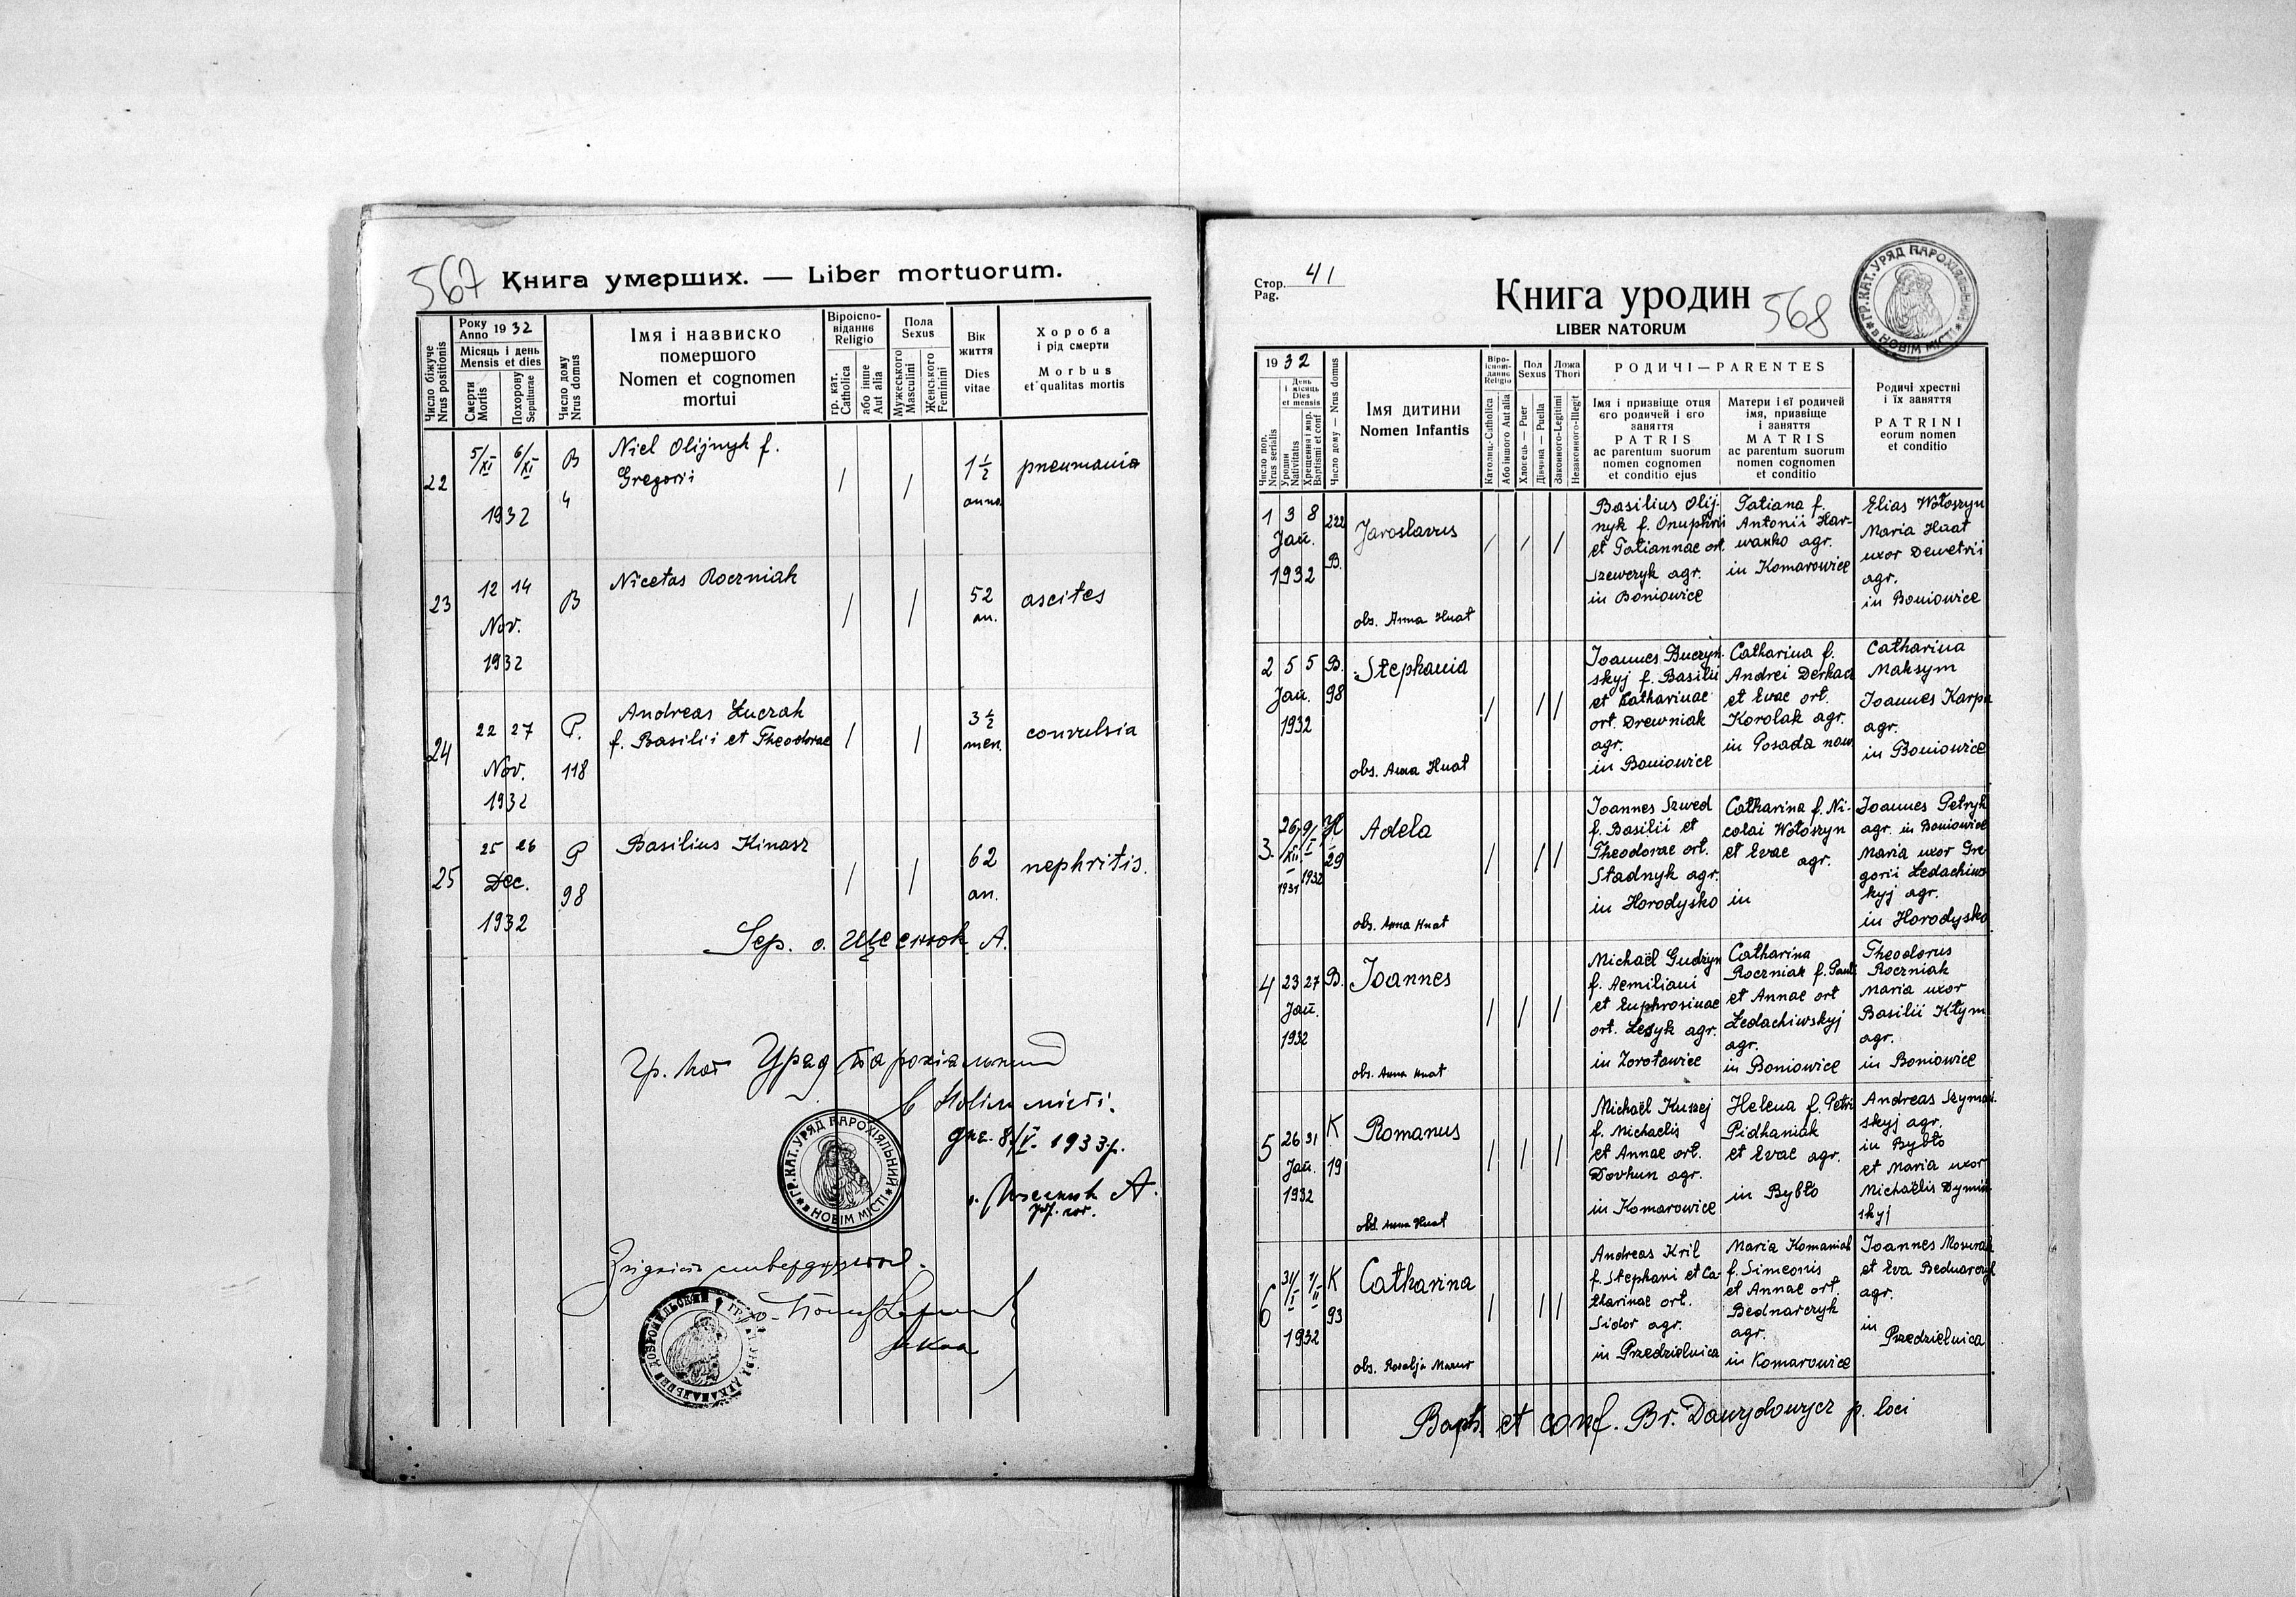 567 Книга умерших. — Liber mortuorum.
Число біжуче
Nrus positionis
Року
Anno 1932
Місяць і день
Mensis et dies
Смерти
Mortis
Похорону
Sepulturae
Число дому
Nrus domus
Імя і назвиско
помершого
Nomen et cognomen
mortui
Віроіспо-
відання
Religio
гр. кат.
Catholica
або інше
Aut alia
Пола
Sexus
Мужеського
Masculini
Женського
Feminini
Вік
життя
Dies
vitae
Хороба
і рід смерти
Morbus
et qualitas mortis
22 5/XI 6/XI 1932 B 4
Niel Olijnyk f.
Gregorii
/ / 1 1/2 anno pneumania
23 12 14 Nov. 1932 B
Nicetas Roczniak
/ / 52 an. ascites
24 22 27 Nov. 1932 P. 118
Andreas Łuczak
f. Basilii et Theodorae
/ / 3 1/2 men. convulsia
25 25 26 Dec. 1932 P 98
Basilius Kinasz
/ / 62 an. nephritis.
Sep. о. Щеснюк А.
Гр. кат Уряд парохіальний
в Новім місті.
дня 8/V. 1933 р.
А.
ГР.КАТ.УРЯД ПАРОХІЯЛЬНИЙ
в НОВІМ МІСТІ
Стор.
Pag. 41
Книга уродин 568
LIBER NATORUM
ГР.КАТ.УРЯД ПАРОХІЯЛЬНИЙ
в НОВІМ МІСТІ
1932
Число пор.
Nrus serialis
День
і місяць
Dies
et mensis
Уродин
Nativitatis
Хрещення і мир.
Baptismi et conf
Число дому — Nrus domus
ІМЯ ДИТИНИ
Nomen Infantis
Віро-
ісповідання
Religio
Католиц.-Catholica
Або іншого Aut alia
Пол
Sexus
Хлопець — Puer
Дівчина — Puella
Ложа
Thori
Законного-Legitimi
Незаконного-Illegit
РОДИЧІ—PARENTES
Імя і призвіще отця
єго родичей і єго
заняття
PATRIS
ac parentum suorum
nomen cognomen
et conditio ejus
Матери і єї родичей
імя, призвіще
і заняття
MATRIS
ac parentum suorum
nomen cognomen
et conditio
Родичі хрестні
і їх заняття
PATRINI
eorum nomen
et conditio
1 3 8 Jan. 1932 222 B.
Jaroslavus
obs. Anna Hnat
/ / /
Basilius Olij-
nyk f. Onuphrii
et Tatiannae ort.
Szewczyk agr.
in Boniowice
Tatiana f.
Antonii Har-
wanko agr.
in Komarowice
Elias Wołoszyn
Maria Haat
uxor Demetrii
agr.
in Boniowice
2 5 5 Jan. 1932 B. 98
Stephania
obs. Anna Hnat
/ / /
Joannes Buczyn-
skyj f. Basilii
et Catharinae
ort. Drewniak
agr.
in Boniowice
Catharina f.
Andrei Derkacz
et Evae ort.
Korolak agr.
in Posada now.
Catharina
Maksym
Joannes Karpa
agr.
in Boniowice
3. 26/XII 1931 9/I 1932 H 29
Adela
obs. Anna Hnat
/ / /
Joannes Szwed
f. Basilii et
Theodorae ort.
Stadnyk agr.
in Horodysko
Catharina f. Ni-
colai Wołoszyn
et Evae
agr.
in
Joannes Petryk
agr. in Boniowice
Maria uxor Gre-
gorii Ledachiws-
kyj agr.
in Horodysko
4 23 27 Jan. 1932 B.
Joannes
obs. Anna Hnat
/ / /
Michaël Gudzyn
f. Aemiliani
et Euphrosinae
ort. Lesyk agr.
in Zorotowice
Catharina
Roczniak f. Pauli
et Annae ort
Ledachiwskyj
agr.
in Boniowice
Theodorus
Roczniak
Maria uxor
Basilii Kłym
agr.
in Boniowice
5 26 31 Jan. 1932 K 19
Romanus
obs. Anna Hnat
/ / /
Michaël Kuszej
f. Michaelis
et Annae ort.
Dovhun agr.
in Komarowice
Helena f. Petri
Pidhaniak
et Evae agr.
in Bybło
Andreas Szyman-
skyj agr.
in Bybło
et Maria uxor
Michaëlis Dymin-
skyj
6 31/I 1/II 1932 K 93
Catharina
obs. Rozalja Mazur
/ / /
Andreas Kril
f. Stephani et Ca-
tharinae ort.
Sidor agr.
in Przedzielnica
Maria Komaniak
f. Simeonis
et Annae ort.
Bednarczyk
agr.
in Komarowice
Joannes Mozurak
et Eva Bednarczyk
agr.
in
Przedzielnica
Bapt. et conf. Br. Dawydowycz p. loci